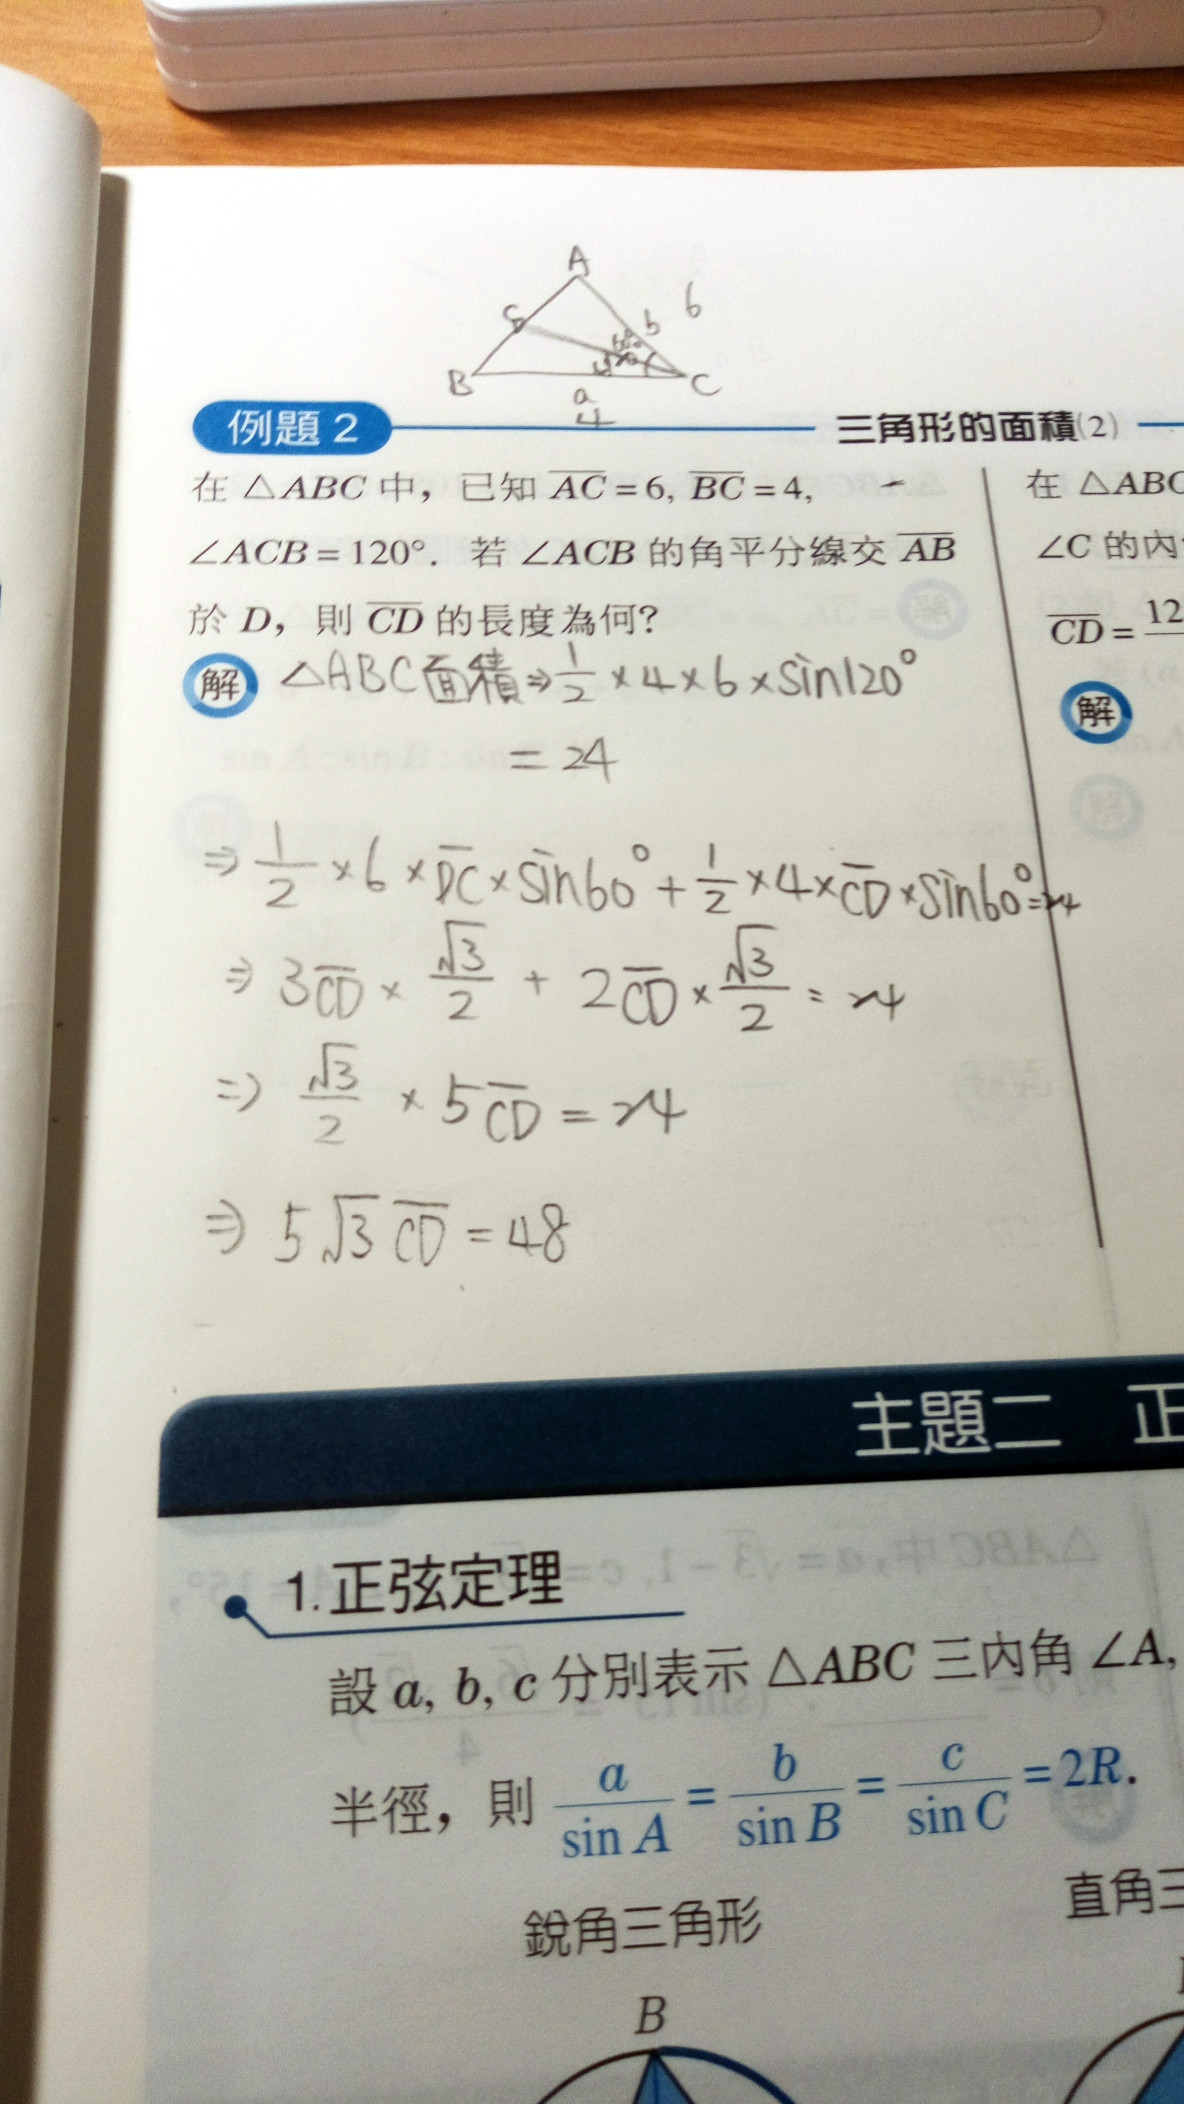 A
b
6
B
a
C
4
例題 2
三角形的面積(2)
在 △ABC 中，已知 AC = 6, BC = 4,
∠ACB = 120°. 若 ∠ACB 的角平分線交 AB
於 D，則 CD 的長度為何？
解 △ABC面積⇒ 1/2 × 4 × 6 × sin120°
= 24
⇒ 1/2 × 6 × DC × sin60° + 1/2 × 4 × CD × sin60° = 24
⇒ 3CD × √3/2 + 2CD × √3/2 = 24
⇒ √3/2 × 5CD = 24
⇒ 5√3 CD = 48
在 △ABC
∠C 的內
CD = 12
解
主題二 正
1. 正弦定理
設 a, b, c 分別表示 △ABC 三內角 ∠A,
半徑，則 a/sin A = b/sin B = c/sin C = 2R.
銳角三角形
直角三
B